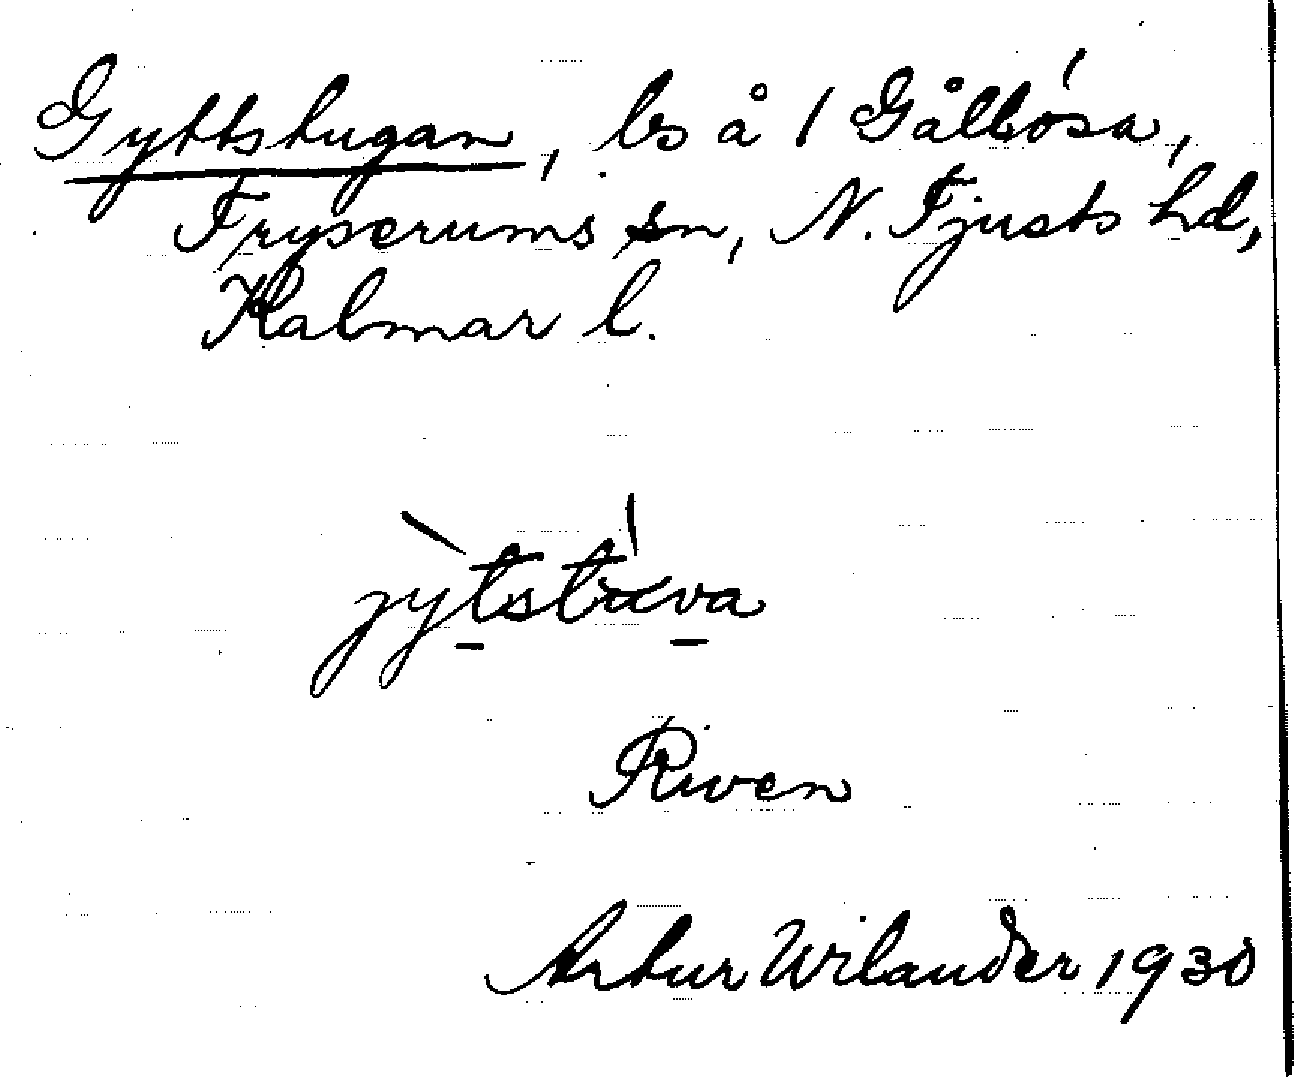 Gyttstugan, ls å 1 Gålósa,
Fryserums sn, N. Tjusts hd,
Kalmar l.
jỳtstúva
Riven
Artur Wilander 1930